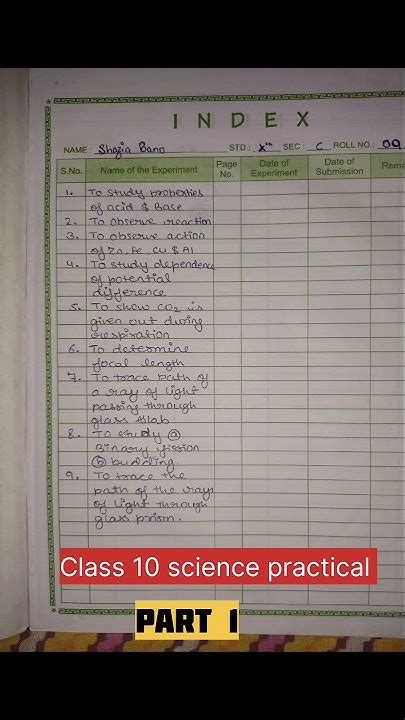 INDEX
NAME : Shazia Bano STD : Xth SEC : C ROLL NO.: 09
S.No. Name of the Experiment Page No. Date of Experiment Date of Submission Rema
1. To study properties
of acid & Base
2. To observe reaction
3. To observe action
of Zn, Fe, Cu & Al
4. To study dependence
of potential
difference
5. To show CO2 is
given out during
respiration
6. To determine
focal length
7. To trace path of
a ray of light
passing through
glass slab
8. To study @
Binary fission
ⓑ budding
9. To trace the
path of the rays
of light through
glass prism.
Class 10 science practical
PART 1